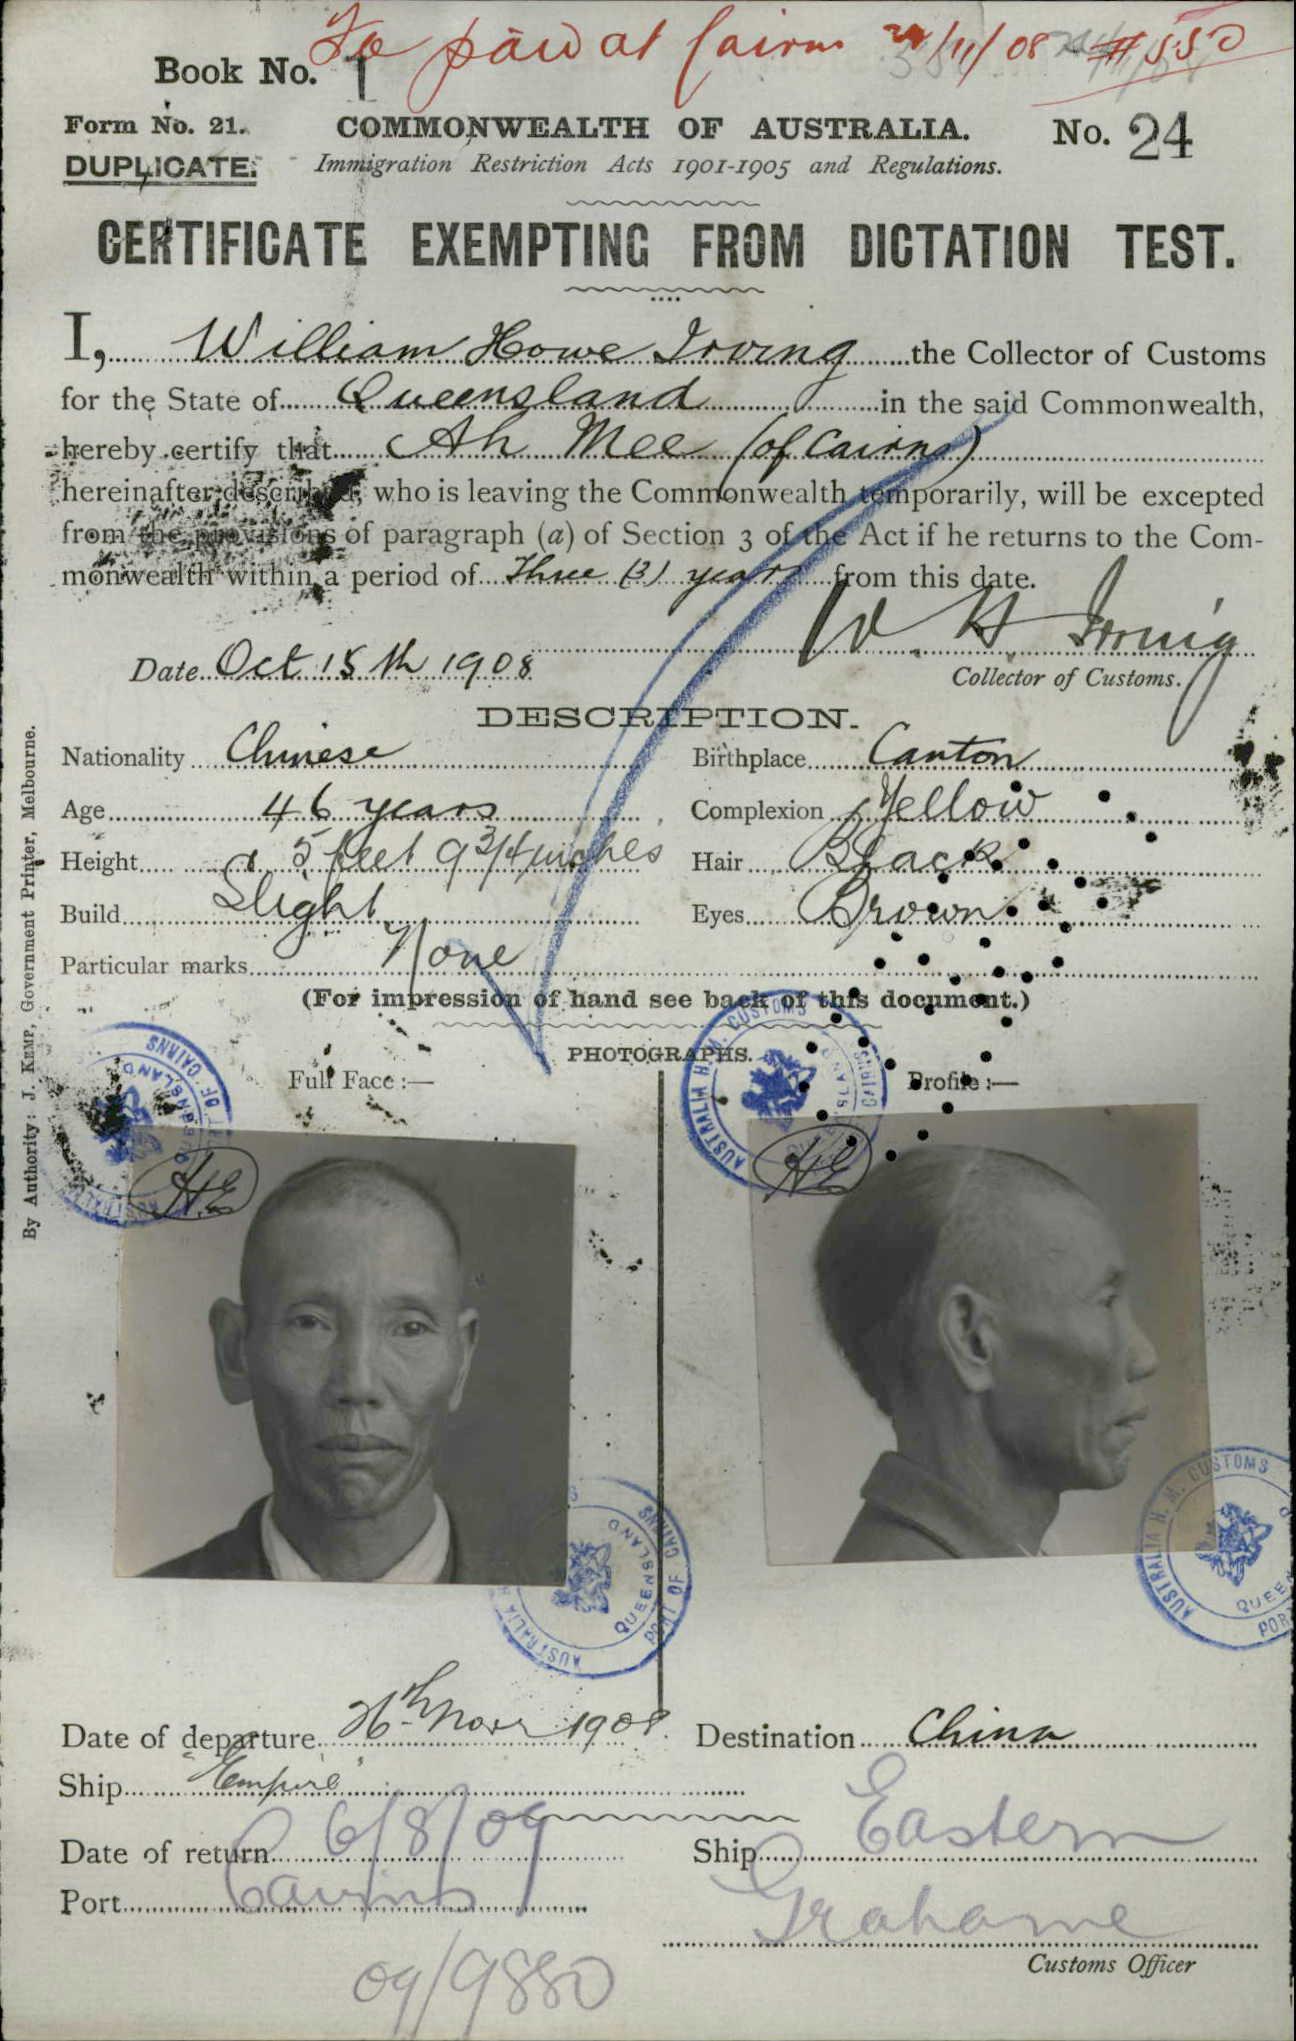 Fee paid at Cairns 24/11/08 # 550
Book No. 1
Form No. 21. COMMONWEALTH OF AUSTRALIA. No. 24
DUPLICATE. Immigration Restriction Acts 1901-1905 and Regulations.
CERTIFICATE EXEMPTING FROM DICTATION TEST.
I, William Howe Irving the Collector of Customs
for the State of Queensland in the said Commonwealth,
hereby certify that Ah Mee (of Cairns)
hereinafter described, who is leaving the Commonwealth temporarily, will be excepted
from the provisions of paragraph (a) of Section 3 of the Act if he returns to the Com-
monwealth within a period of Three (3) years from this date.
W. H. Irving
Date Oct 15th 1908
Collector of Customs.
DESCRIPTION.
Nationality Chinese Birthplace Canton
Age 46 years Complexion Yellow
Height 5 feet 9 3/4 inches Hair Black
Build Slight Eyes Brown
Particular marks None
(For impression of hand see back of this document.)
PHOTOGRAPHS.
Full Face :— Profile :—
AUSTRALIA H. M. CUSTOMS QUEENSLAND PORT OF CAIRNS
H.E H.E
AUSTRALIA QUEENSLAND PORT OF CAIRNS
AUSTRALIA H. M. CUSTOMS
By Authority: J. KEMP, Government Printer, Melbourne.
Date of departure 26th Novr 1908. Destination China
Ship "Empire"
Date of return 6/8/09 Ship Eastern
Port Cairns Grahame
Customs Officer
09/9880